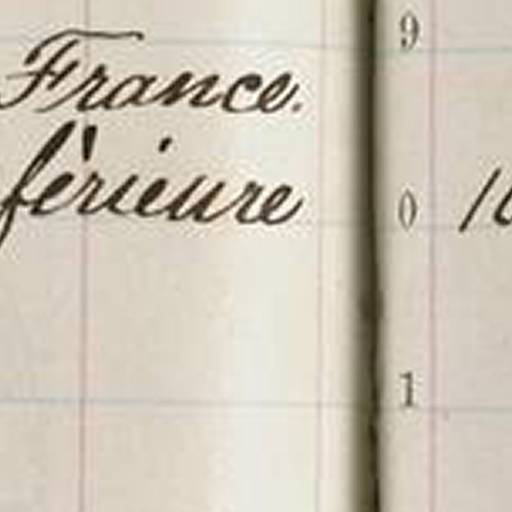 France.
férieure
9
0
1